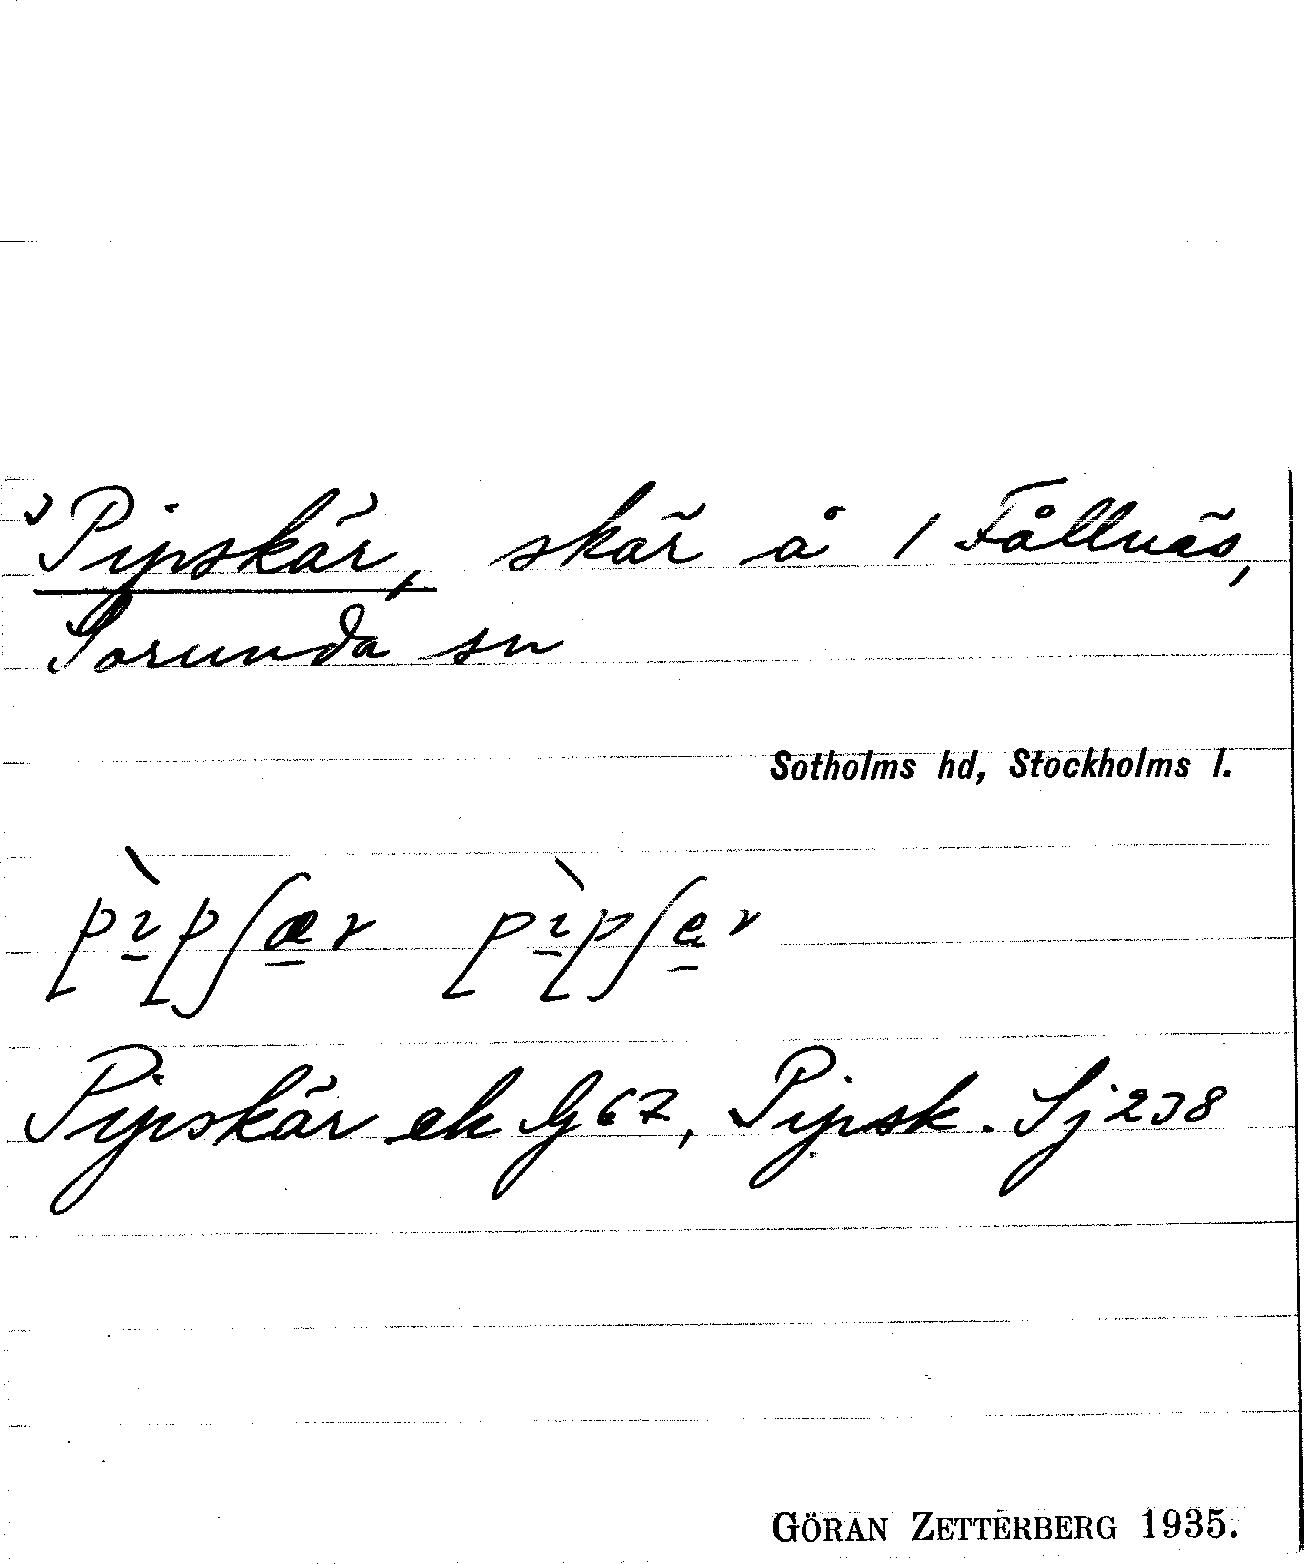 Pipskär, skär å 1 Fållnäs,
Sorunda sn
Sotholms hd, Stockholms l.
pìpʃær pìpʃer
Pipskär ek G 67, Pipsk. Sj 238
GÖRAN ZETTERBERG 1935.